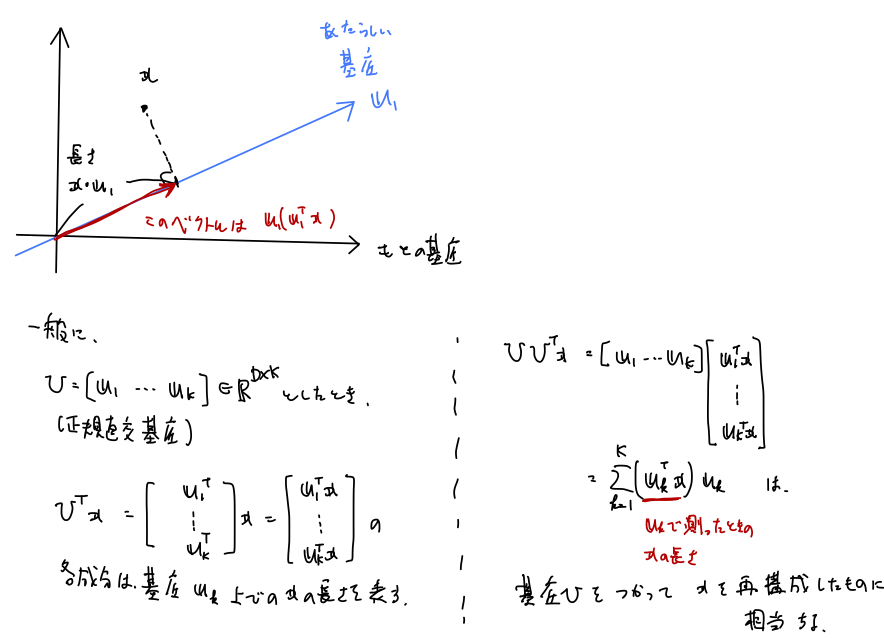 あたらしい
基底
u₁
x
長さ
x・u₁
このベクトルは u₁(u₁ᵀx)
もとの基底
一般に、
U = [u₁ … u_K] ∈ ℝ^{D×K} としたとき、
(正規直交基底)
Uᵀx = [u₁ᵀ ⋮ u_Kᵀ] x = [u₁ᵀx ⋮ u_Kᵀx] の
各成分は、基底 u_k 上での xの長さを表る.
UUᵀx = [u₁ … u_K] [u₁ᵀx ⋮ u_Kᵀx]
= Σ_{k=1}^{K} (u_kᵀx) u_k は、
u_kで測ったときの
xの長さ
基底Uをつかって xを再構成したものに
相当する.